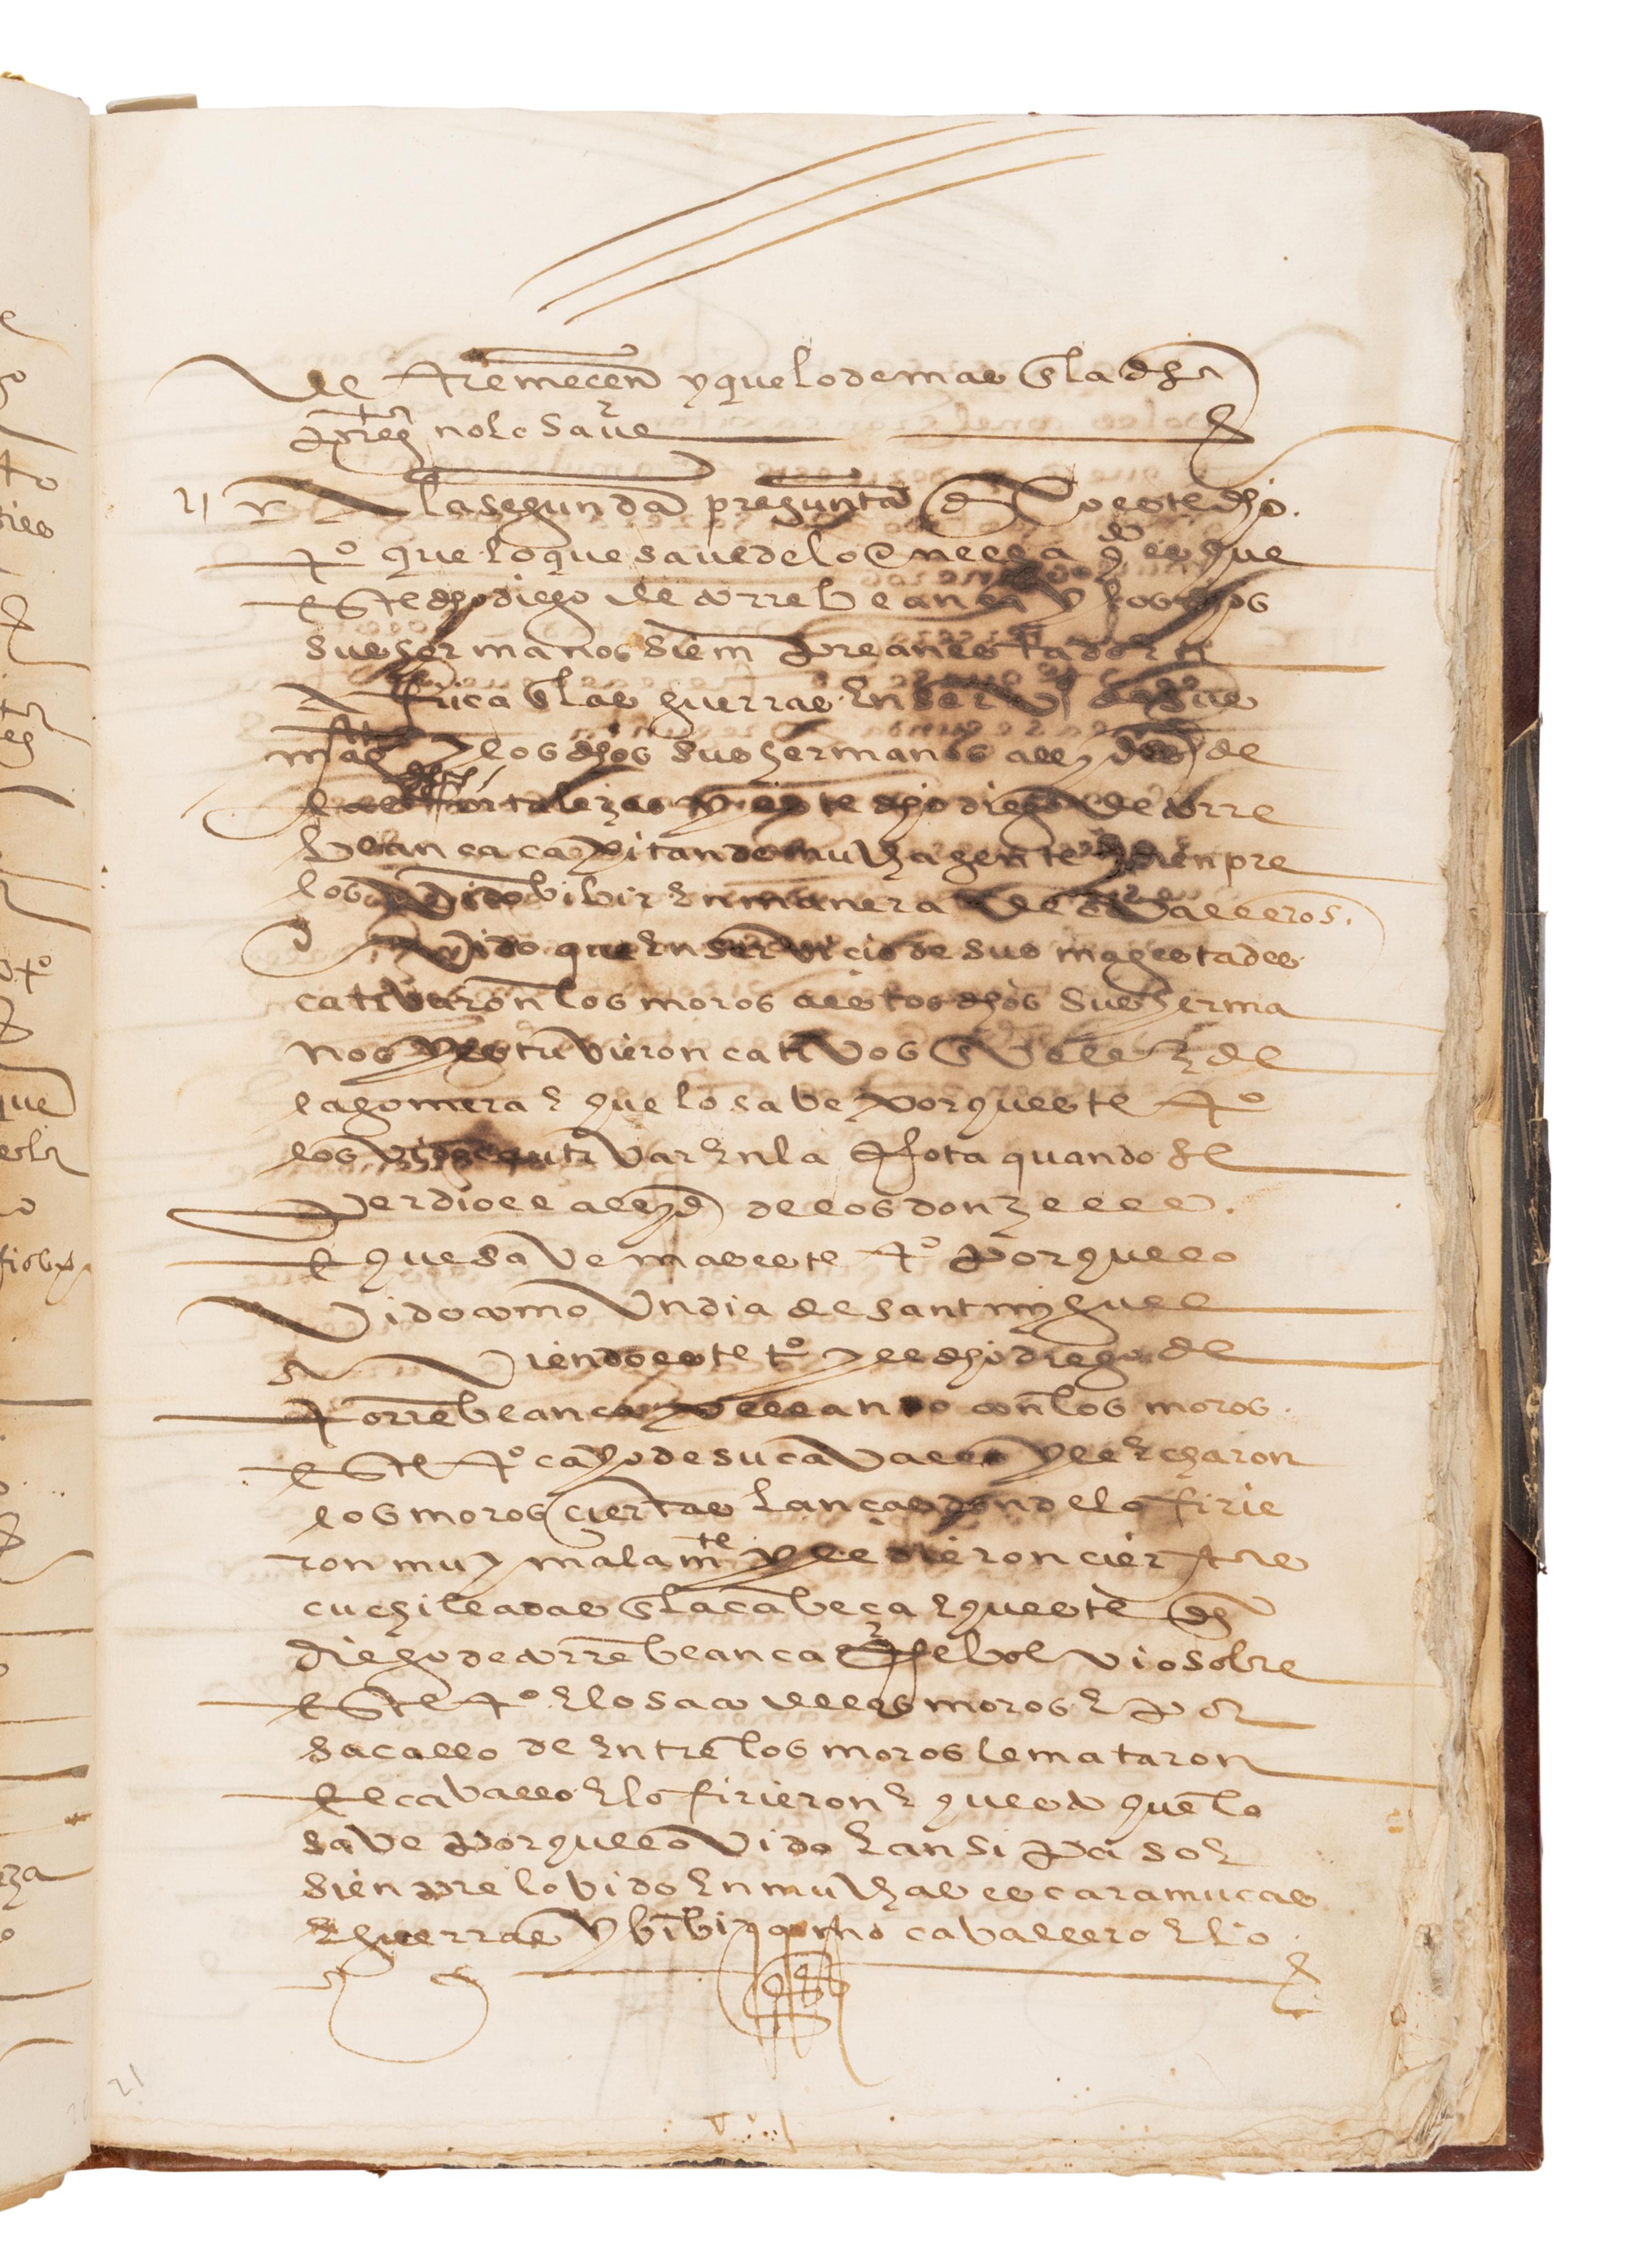 de tremecen y que lo demas en la dha
preg^ta no lo save
ij r A la segunda pregunta dixo este dho
t^o que lo que save de lo en ella q^do es que
este dho diego de torreblanca y los dhos
sus hermanos siempre an estado en
africa en las guerras en serv^o de sus
mag^des y los dhos sus hermanos
fortalezas y este dho diego de torre
blanca capitan de mucha gente sienpre
los vido bibir en manera de cavalleros.
y vido que en servicio de sus magestades
cativaron los moros a estos dhos sus herma
nos y estuvieron cativos en velez de
la gomera e que lo sabe porque este t^o
los vido cautivar en la rota quando se
perdio el alcayde de los donzeles.
e que save mas este t^o porque lo
vido como un dia de sant miguel
viendo este t^o y el dho diego de
torreblanca peleando con los moros.
este t^o cayo de su cavallo y le echaron
los moros ciertas lanças donde lo firie
ron muy malam^te y le dieron ciertas
cuchilladas en la cabeça e que este dho
diego de torreblanca rebolvio sobre
este t^o e lo saco de los moros e por
sacallo de entre los moros le mataron
el caballo e lo firieron e que esto que lo
save porque lo vido e ansi paso e
sienpre lo bido en muchas escaramuças
e guerras y bibir como caballero e lo
21